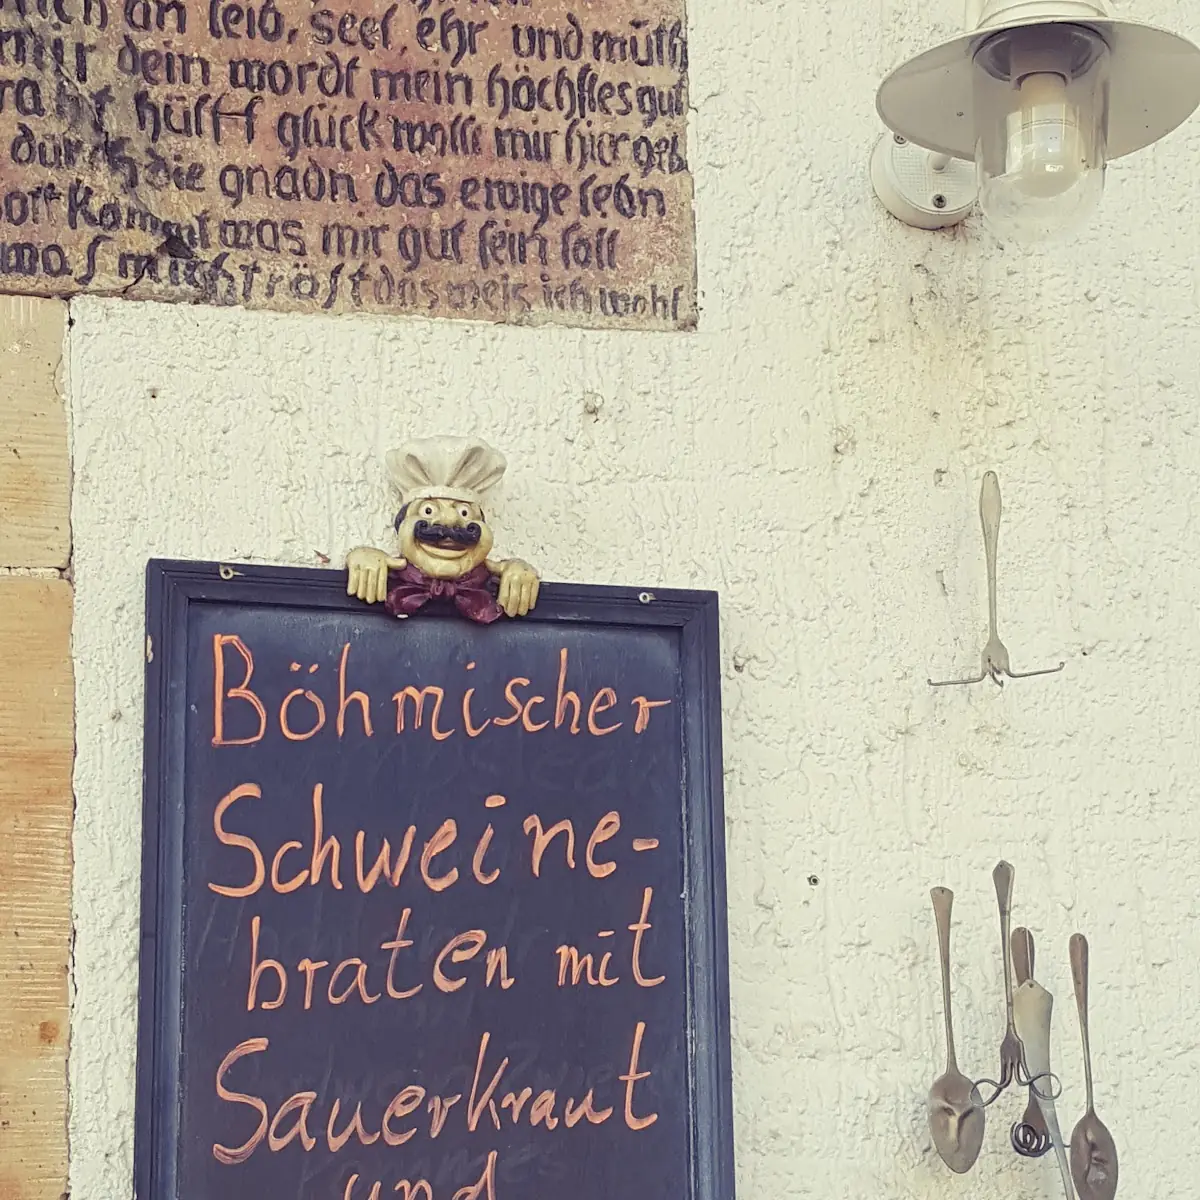 an leib, seel, ehr und muth
mir dein wordt mein höchstes gut
hülff glück wolle mir hier geb
durch die gnadn das ewige lebn
dort kommt was mir gut sein soll
was mich tröst das weis ich wohl
Böhmischer
Schweine-
braten mit
Sauerkraut
und